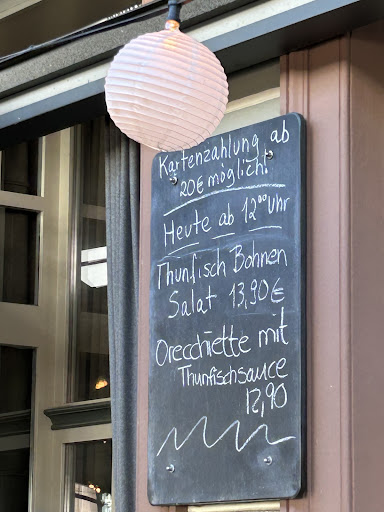 Kartenzahlung ab
20€ möglich!
Heute ab 12⁰⁰ Uhr
Thunfisch Bohnen
Salat 13,90€
Orecchiette mit
Thunfischsauce
12,90